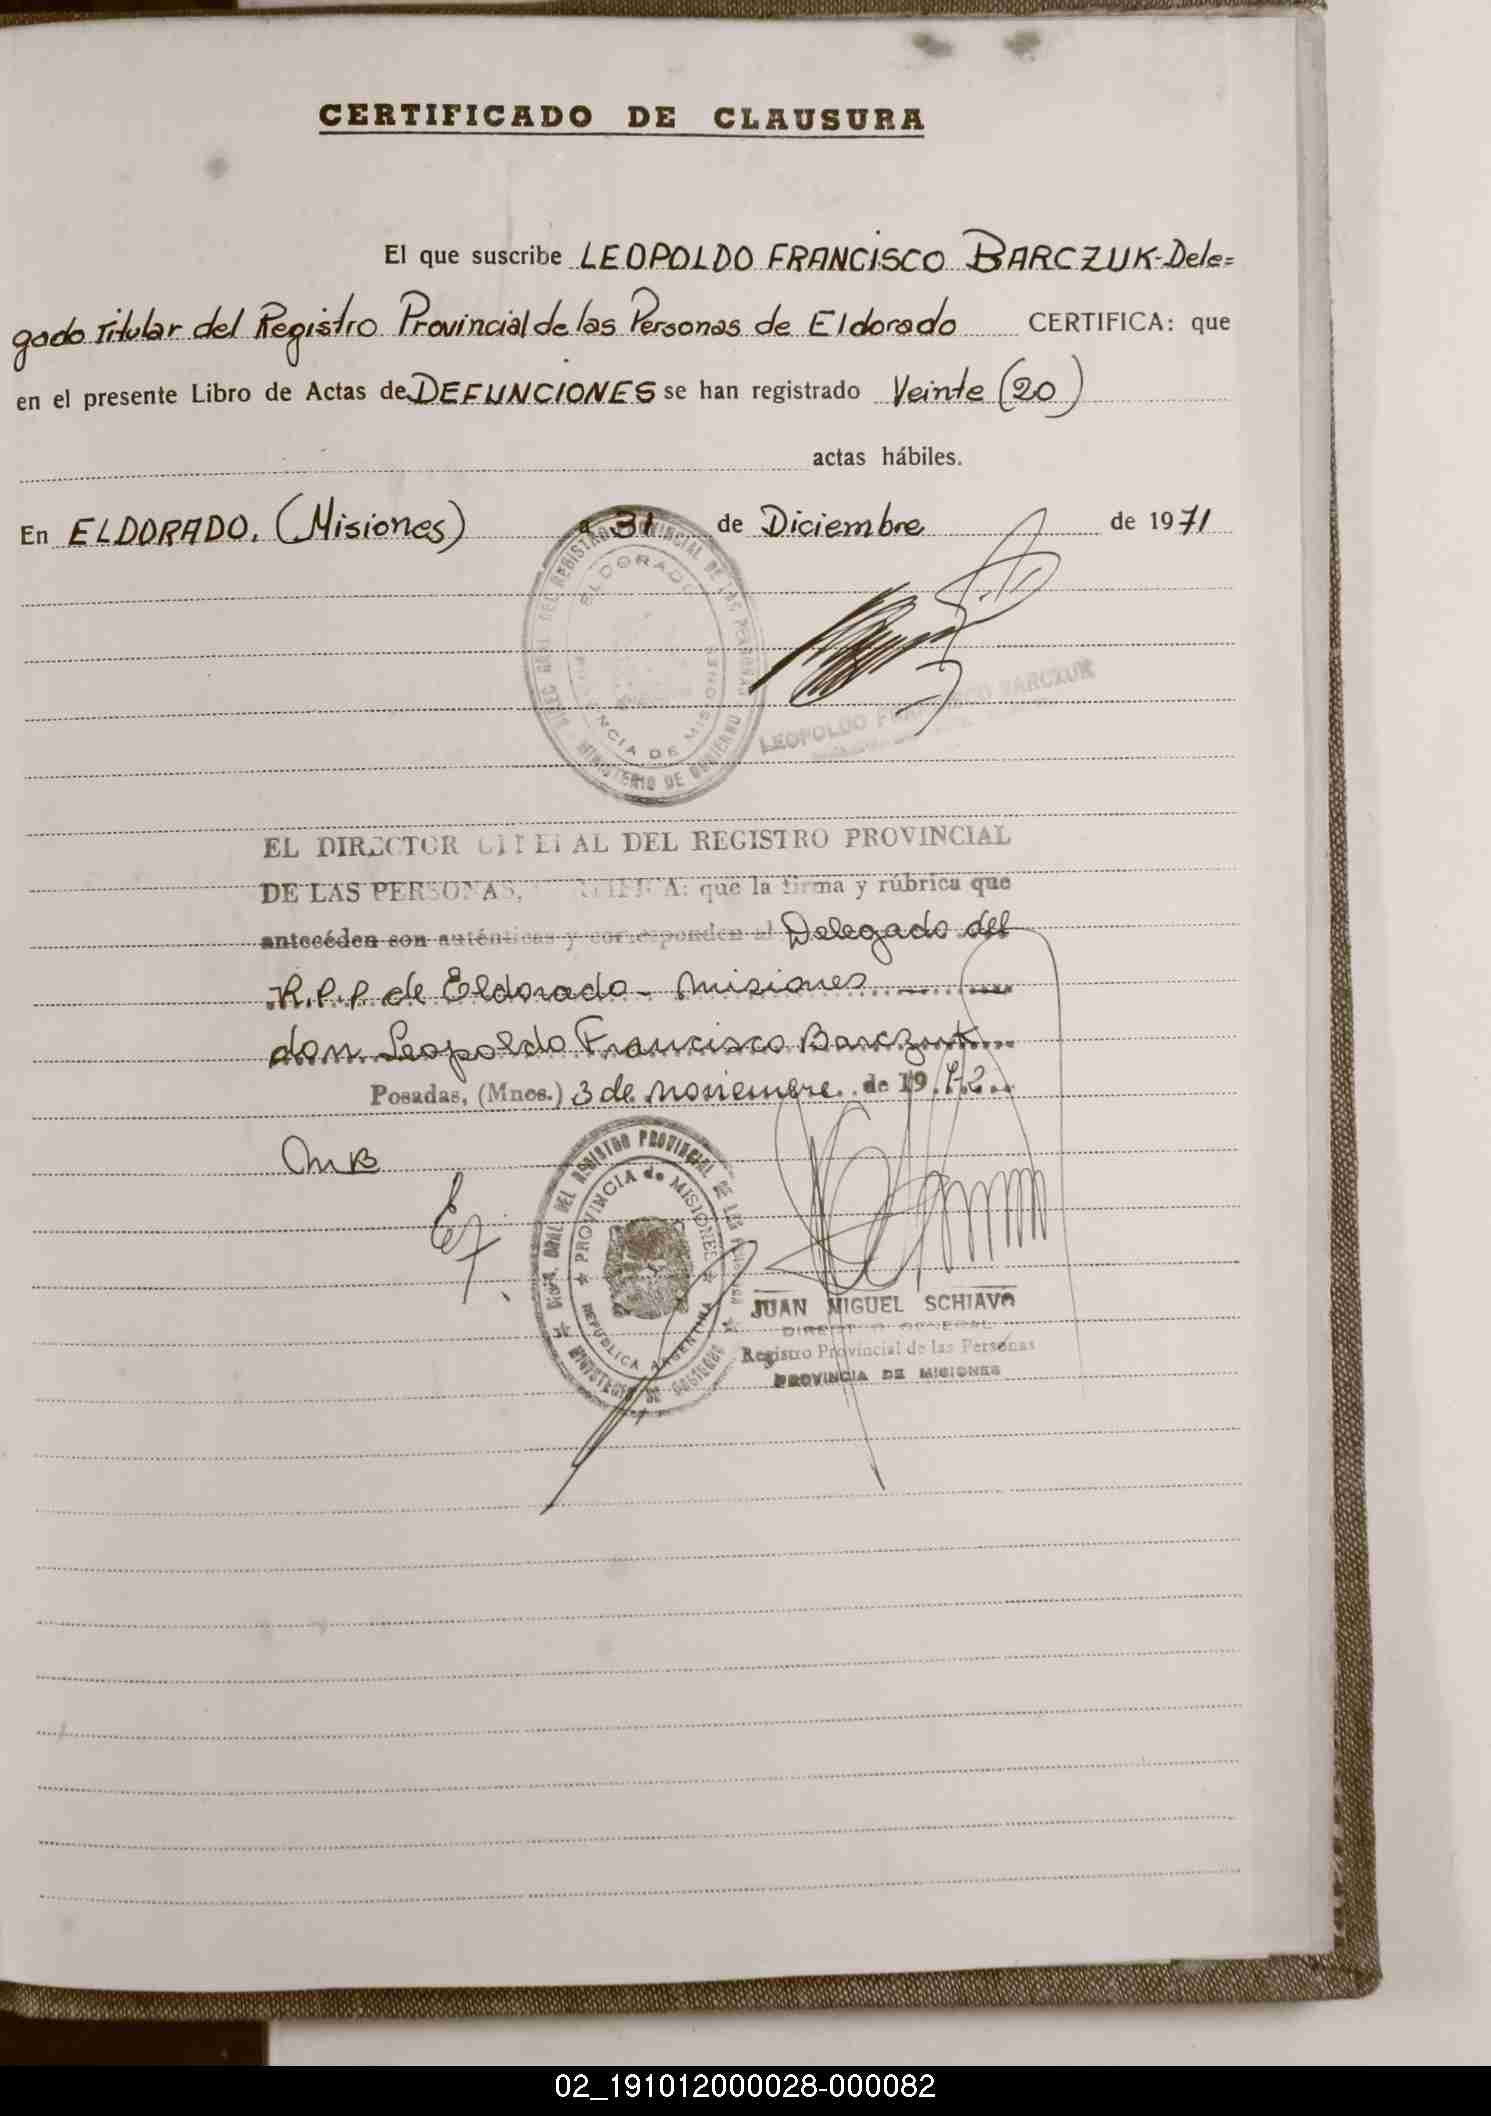 CERTIFICADO DE CLAUSURA
El que suscribe LEOPOLDO FRANCISCO BARCZUK-Dele=
gado Titular del Registro Provincial de las Personas de Eldorado CERTIFICA: que
en el presente Libro de Actas de DEFUNCIONES se han registrado Veinte (20)
actas hábiles.
En ELDORADO, (Misiones) a 31 de Diciembre de 1971
DIREC. GRAL. DEL REGISTRO PROVINCIAL DE LAS PERSONAS
ELDORADO
PROVINCIA DE MISIONES
MINISTERIO DE GOBIERNO
LEOPOLDO FRANCISCO BARCZUK
EL DIRECTOR GENERAL DEL REGISTRO PROVINCIAL
DE LAS PERSONAS, CERTIFICA: que la firma y rúbrica que
antecéden son auténticas y corresponden al Delegado del
R.P.P de Eldorado - Misiones
don Leopoldo Francisco Barczuk
Posadas, (Mnes.) 3 de noviembre de 1972
MB
DIREC. GRAL. DEL REGISTRO PROVINCIAL DE LAS PERSONAS
PROVINCIA de MISIONES
REPUBLICA ARGENTINA
MINISTERIO DE GOBIERNO
JUAN MIGUEL SCHIAVO
DIRECTOR GENERAL
Registro Provincial de las Personas
PROVINCIA DE MISIONES
02_191012000028-000082